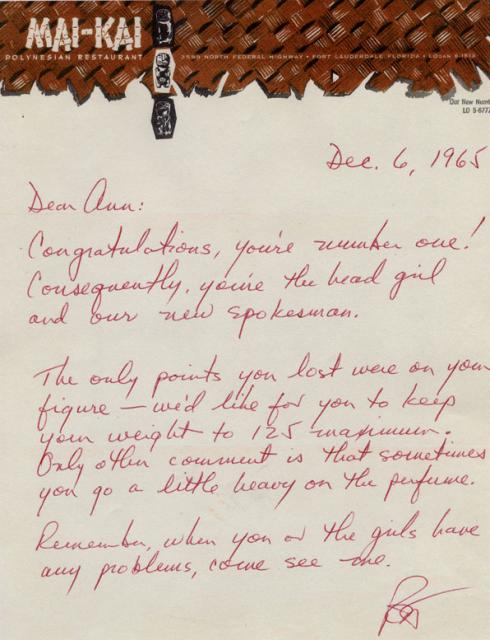 MAI-KAI
POLYNESIAN RESTAURANT
3599 NORTH FEDERAL HIGHWAY • FORT LAUDERDALE, FLORIDA • LOGAN
Our New Numb
LO 5-677
Dec. 6, 1965
Dear Ann:
Congratulations, you're number one!
Consequently, you're the head girl
and our new spokesman.
The only points you lost were on your
figure — we'd like for you to keep
your weight to 125 maximum.
Only other comment is that sometimes
you go a little heavy on the perfume.
Remember, when you or the girls have
any problems, come see me.